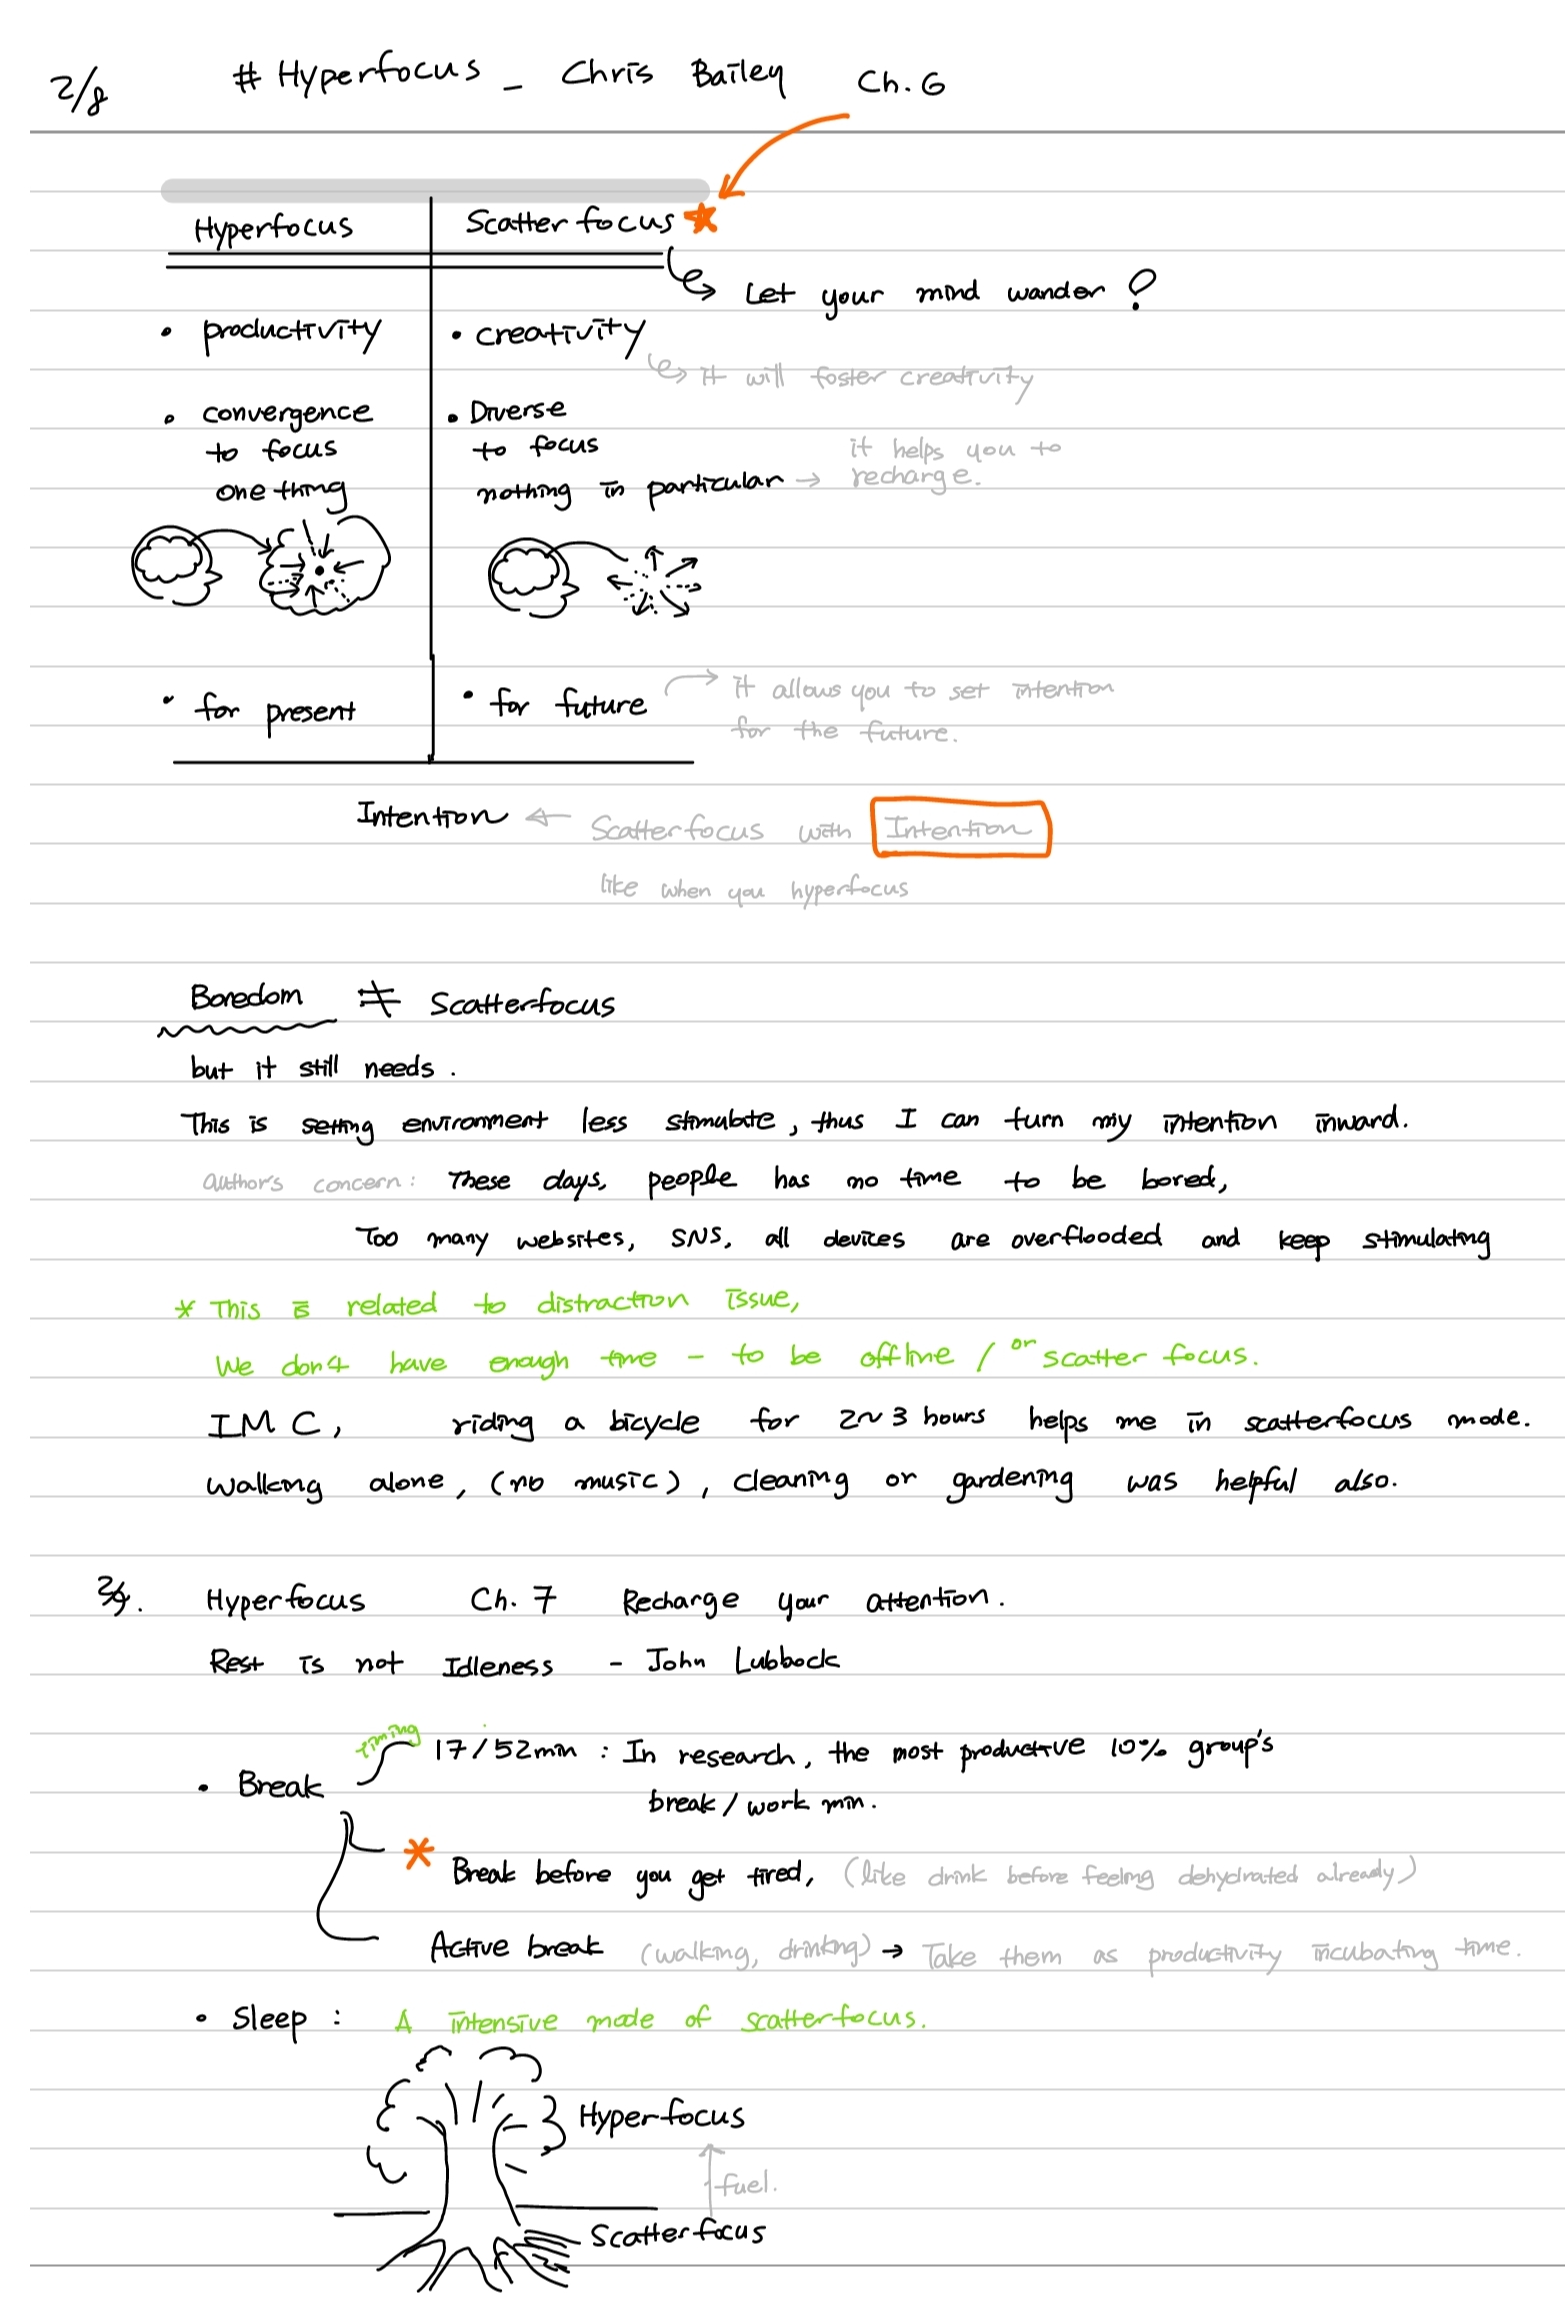 2/8 # Hyperfocus – Chris Bailey Ch.6
Hyperfocus Scatterfocus
Let your mind wander ?
• productivity • creativity
it will foster creativity
• convergence • Diverse
to focus to focus it helps you to
one thing nothing in particular → recharge.
• for present • for future it allows you to set intention
for the future.
Intention ← Scatterfocus with Intention
like when you hyperfocus
Boredom ≠ Scatterfocus
but it still needs.
This is setting environment less stimulate, thus I can turn my intention inward.
author's concern: These days, people has no time to be bored,
Too many websites, SNS, all devices are overflooded and keep stimulating
* This is related to distraction issue,
We don't have enough time – to be offline / or scatter focus.
IMC, riding a bicycle for 2~3 hours helps me in scatterfocus mode.
Walking alone, (no music), cleaning or gardening was helpful also.
2/9. Hyperfocus Ch. 7 Recharge your attention.
Rest is not Idleness – John Lubbock
timing 17/52min : In research, the most productive 10% group's
• Break
break/work min.
* Break before you get tired, (like drink before feeling dehydrated already)
Active break (walking, drinking) → Take them as productivity incubating time.
• Sleep : A intensive mode of scatterfocus.
Hyperfocus
fuel.
Scatterfocus